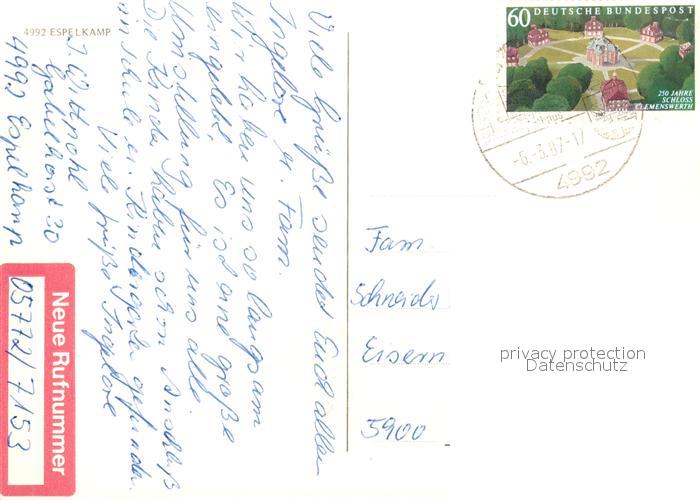 4992 ESPELKAMP
Viele Grüße sendet Euch allen
Ingelore u. Fam.
Wir haben uns so langsam
eingelebt. Es ist eine große
Umstellung für uns alle.
Die Kinder haben schon Anschluß
in Schule u. Kindergarten gefunden.
Viele Grüße Ingelore
Gabelhorst 30
4992 Espelkamp
Neue Rufnummer
05772/7153
60 DEUTSCHE BUNDESPOST
250 JAHRE
SCHLOSS
CLEMENSWERTH
-6.-3.87-17
4992
Fam.
Schneider
Eisern
5900
privacy protection
Datenschutz